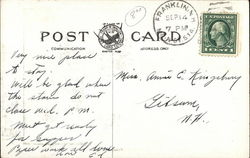 FRANKLIN, N.H.
SEP 14
7 PM
POST CARD
COMMUNICATION
ADDRESS ONLY
Very nice place
to stay.
Will be glad when
the stores do not
close wed. P.M.
Must get ready
for supper
Miss. Annie E. Kingsbury
Gilsum,
N.H.